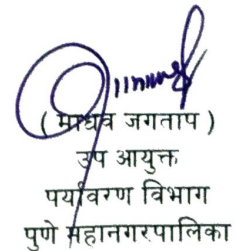 ( माधव जगताप )
उप आयुक्त
पर्यावरण विभाग
पुणे महानगरपालिका